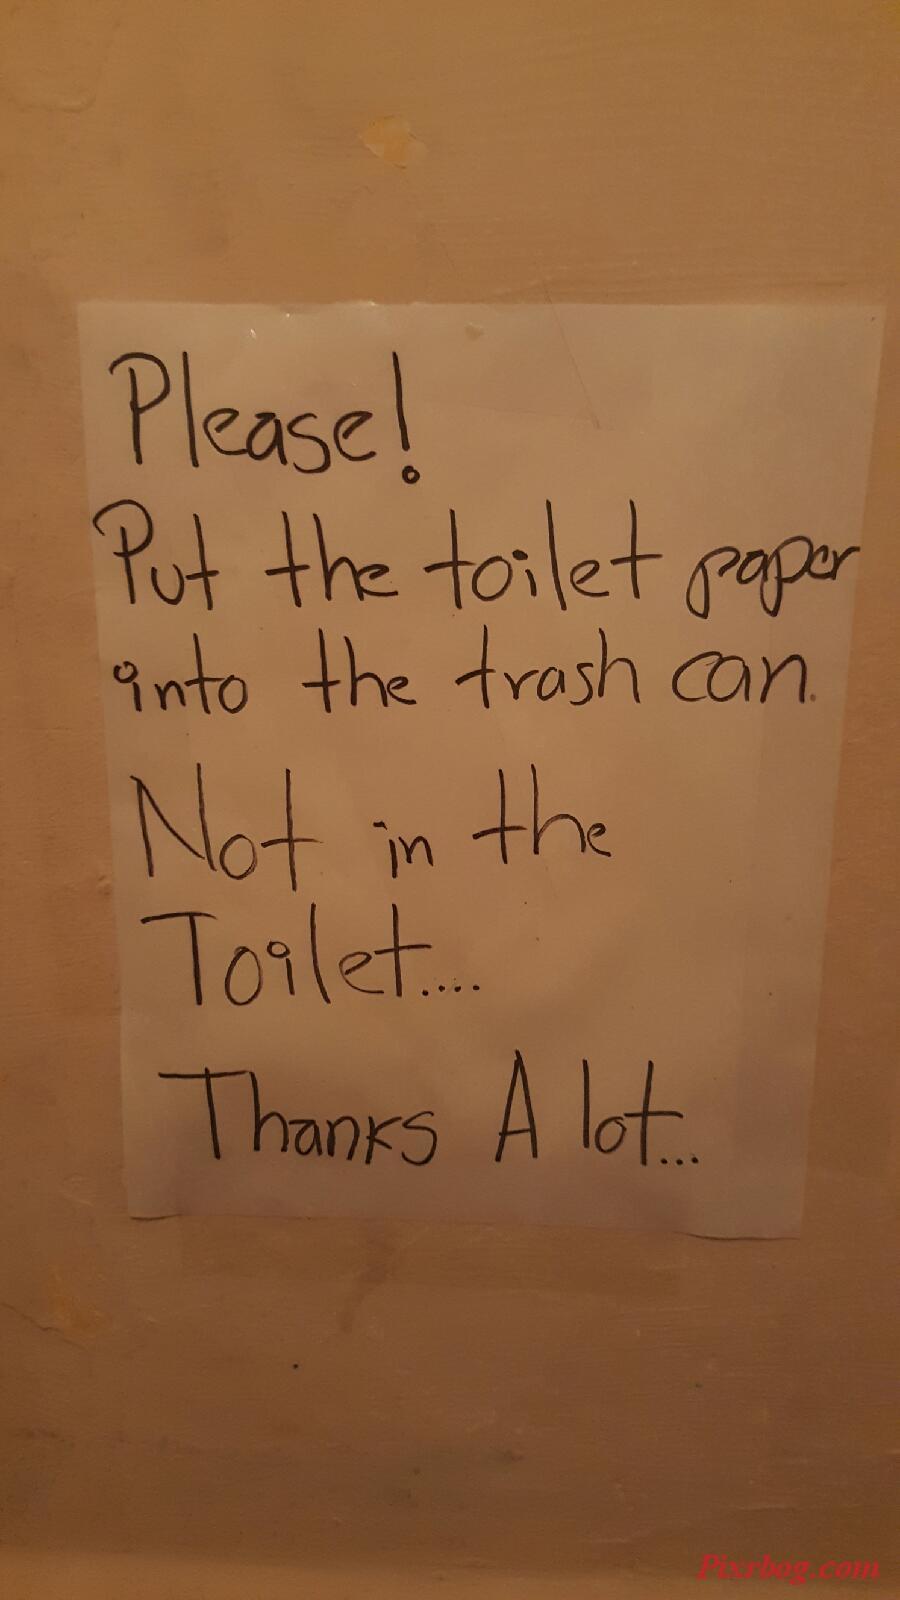 Please!
Put the toilet paper
into the trash can.
Not in the
Toilet....
Thanks A lot...
Pixrbog.com